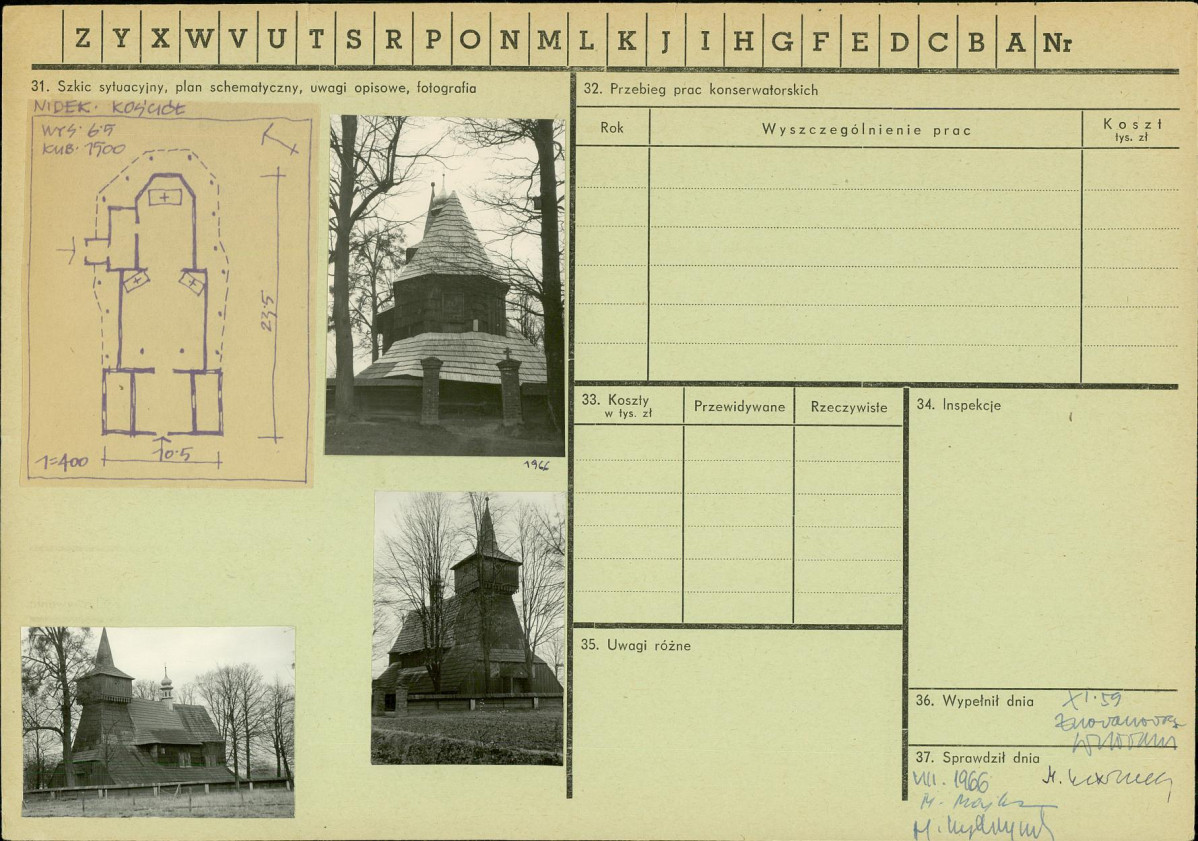 Z Y X W V U T S R P O N M L K J I H G F E D C B A Nr
31. Szkic sytuacyjny, plan schematyczny, uwagi opisowe, fotografia
NIDEK. KOŚCIÓŁ
WYS. 6.5
KUB. 1900
23.5
10.5
1=400
1966
32. Przebieg prac konserwatorskich
Rok
Wyszczególnienie prac
Koszt
tys. zł
33. Koszty
w tys. zł
Przewidywane
Rzeczywiste
34. Inspekcje
35. Uwagi różne
36. Wypełnił dnia XI.59
37. Sprawdził dnia
VIII. 1966